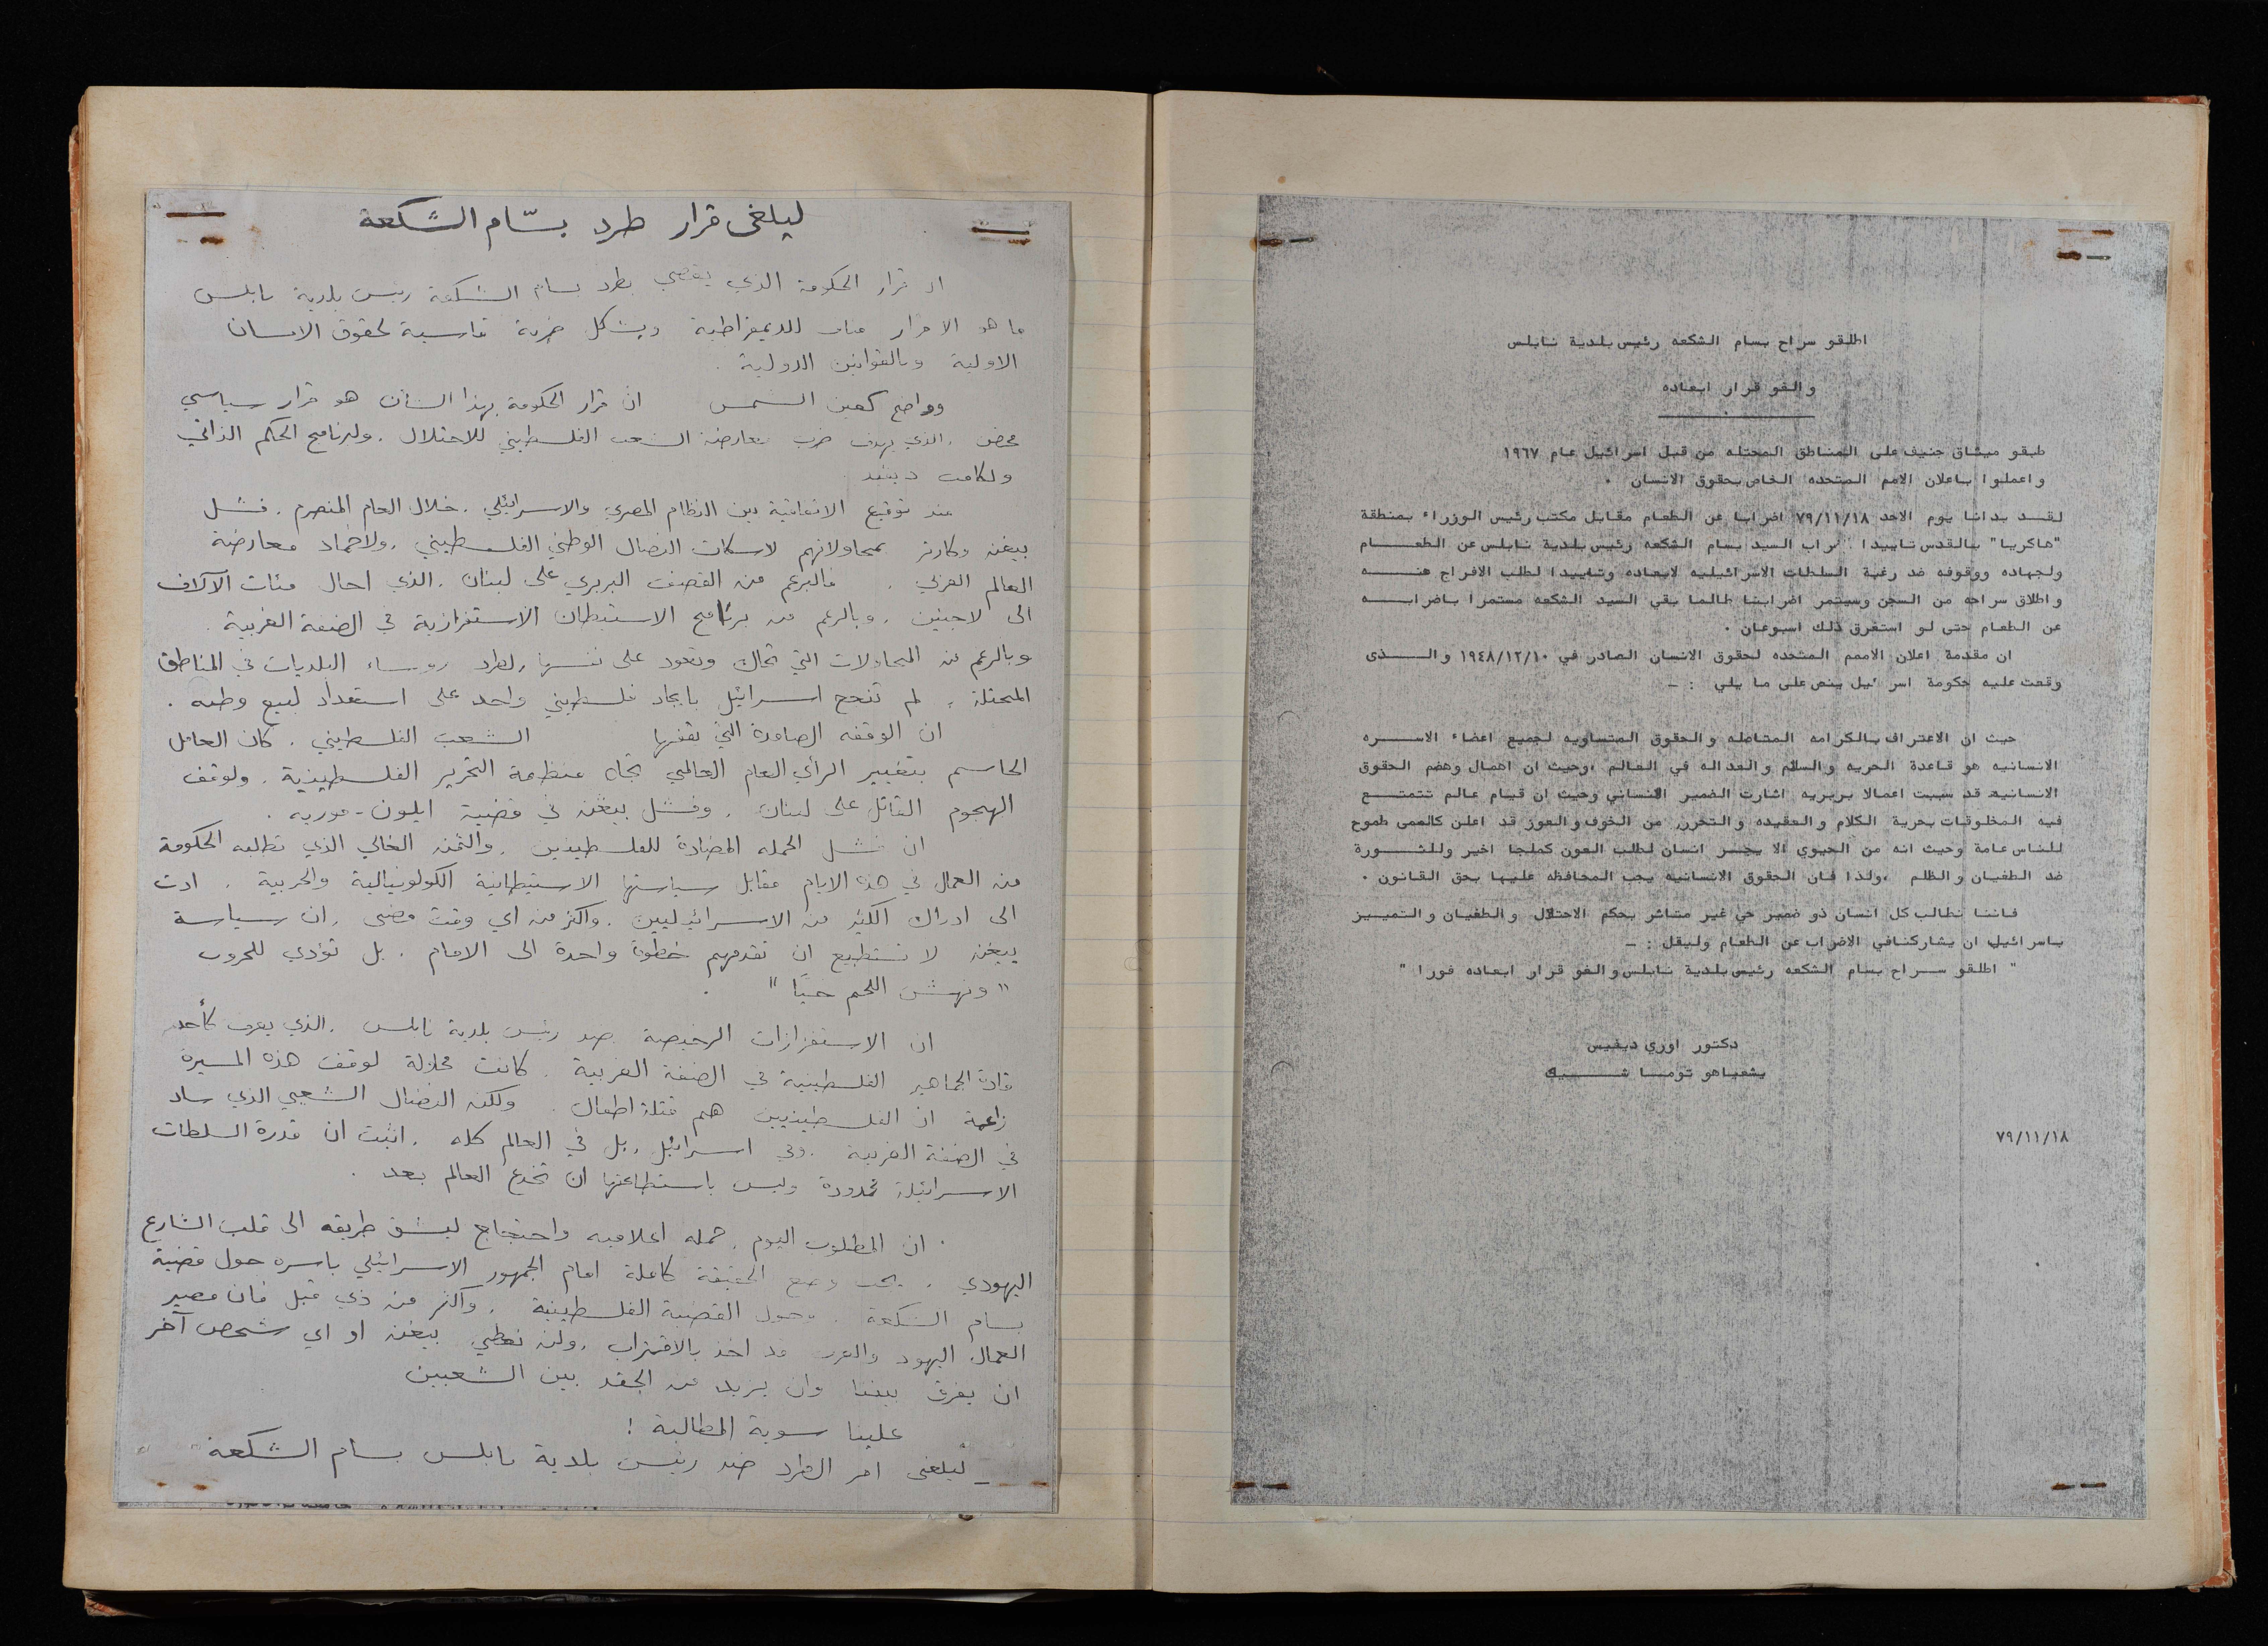 اطلقو سراح بسام الشكعه رئيس بلدية نابلس
والغو قرار ابعاده
طبقو ميثاق جنيف على المناطق المحتله من قبل اسرائيل عام ١٩٦٧
واعملوا باعلان الامم المتحده الخاص بحقوق الانسان .
لقد بدانا يوم الاحد ٧٩/١١/١٨ اضرابا عن الطعام مقابل مكتب رئيس الوزراء بمنطقة
"هاكريا" بالقدس تاييدا لاضراب السيد بسام الشكعه رئيس بلدية نابلس عن الطعام
ولجهاده ووقوفه ضد رغبة السلطات الاسرائيليه لابعاده وتاييدا لطلب الافراج عنه
واطلاق سراحه من السجن وسيتمر اضرابنا طالما بقي السيد الشكعه مستمرا باضرابه
عن الطعام حتى لو استغرق ذلك اسبوعان .
ان مقدمة اعلان الاممم المتحده لحقوق الانسان الصادر في ١٩٤٨/١٢/١٠ والذى
وقعت عليه حكومة اسرائيل ينص على ما يلي : ــ
حيث ان الاعتراف بالكرامه المتاصله والحقوق المتساويه لجميع اعضاء الاسره
الانسانيه هو قاعدة الحريه والسلام والعداله في العالم ،وحيث ان اهمال وهضم الحقوق
الانسانيه قد سببت اعمالا بربريه اشارت الضمير الانساني وحيث ان قيام عالم تتمتع
فيه المخلوقات بحرية الكلام والعقيده والتحرر من الخوف والعوز قد اعلن كالعمى طموح
للناس عامة وحيث انه من الحيوي الا يجبر انسان لطلب العون كملجا اخير وللثورة
ضد الطغيان والظلم ،ولذا فان الحقوق الانسانيه يجب المحافظه عليها بحق القانون .
فاننا نطالب كل انسان ذو ضمير حي غير متاثر بحكم الاحتلال والطغيان والتمييز
باسرائيل ان يشاركنافي الاضراب عن الطعام وليقل : ــ
" اطلقو سراح بسام الشكعه رئيس بلدية نابلس والغو قرار ابعاده فورا "
دكتور اوري ديفيس
يشعياهو توما شيك
٧٩/١١/١٨
ليلغى قرار طرد بسّام الشكعة
ان قرار الحكومة الذي يقضي بطرد بسام الشكعة رئيس بلدية نابلس
ما هو الا قرار مناف للديمقراطية ويشكل ضربة قاسية لحقوق الانسان
الاولية وبالقوانين الدولية .
وواضح كعين الشمس ان قرار الحكومة بهذا الشان هو قرار سياسي
محض ، الذي يهدف ضرب معارضة الشعب الفلسطيني للاحتلال ، ولبرنامج الحكم الذاتي
ولكامب ديفيد
منذ توقيع الاتفاقية بين النظام المصري والاسرائيلي ، خلال العام المنصرم ، فشل
بيغن وكارتر بمحاولاتهم لاسكات النضال الوطني الفلسطيني ، ولاخماد معارضة
العالم العربي . فالبرغم من القصف البربري على لبنان ، الذي احال مئات الآلاف
الى لاجئين ، وبالرغم من برنامج الاستيطان الاستفزازية في الضفة الغربية
وبالرغم من المحاولات التي تحاك وتعود على نفسها ، لطرد روساء البلديات في المناطق
المحتلة ، لم تنجح اسرائيل بايجاد فلسطيني واحد على استعداد لبيع وطنه .
ان الوقفه الصامدة التي يقفها الشعب الفلسطيني ، كان العامل
الحاسم بتغيير الرأي العام العالمي تجاه منظمة التحرير الفلسطينية ، ولوقف
الهجوم القاتل على لبنان ، وفشل بيغن في قضية ايلون - موريه .
ان فشل الحمله المضادة للفلسطينين ، والثمن الغالي الذي تطالبه الحكومة
من العمال في هذه الايام مقابل سياستها الاستيطانية الكولونيالية والحربية ، ادت
الى ادراك الكثير من الاسرائيليين ، واكثر من اي وقت مضى ، ان سياسة
بيغن لا تستطيع ان تقدمهم خطوة واحدة الى الامام ، بل تؤدي للحروب
" ونهش اللحم حيًا " .
ان الاستفزازات الرخيصة ضد رئيس بلدية نابلس ، الذي يعرف كأحد
قادة الجماهير الفلسطينية في الضفة الغربية ، كانت محاولة لوقف هذه المسيرة
زاعمة ان الفلسطينيين هم قتلة اطفال . ولكن النضال الشعبي الذي ساد
في الضفة الغربية ، وفي اسرائيل ، بل في العالم كله ، اثبت ان قدرة السلطات
الاسرائيلية محدودة وليس باستطاعتها ان تخدع العالم بعد .
ان المطلوب اليوم ، حمله اعلاميه واحتجاج ليشق طريقه الى قلب الشارع
اليهودي . يجب وضع الحقيقة كاملة امام الجمهور الاسرائيلي باسره حول قضية
بسام الشكعة ، وحول القضية الفلسطينية ، واكثر من ذي قبل فان مصير
العمال اليهود والعرب قد اخذ بالاقتراب ، ولن نعطي بيغن او اي شخص آخر
ان يفرق بيننا وان يزيد من الحقد بين الشعبين
علينا سوية المطالبة !
_ ليلغى امر الطرد ضد رئيس بلدية نابلس بسام الشكعة